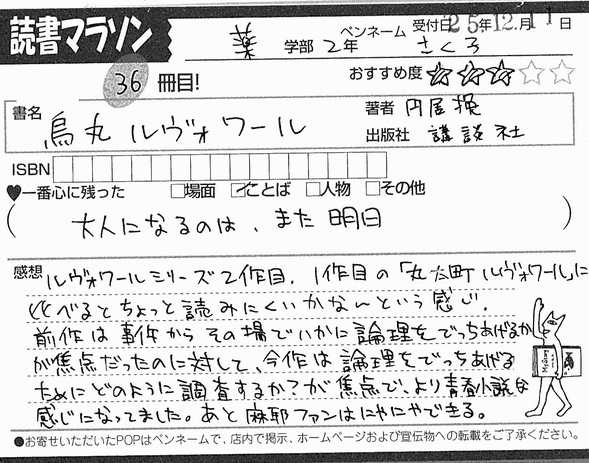 読書マラソン
薬 学部 2年
ペンネーム さくろ
受付日 25年12月11日
36 冊目!
おすすめ度 ★★★☆☆
書名 烏丸ルヴォワール
著者 円居挽
出版社 講談社
ISBN
♥一番心に残った □場面 ☑ことば □人物 □その他
(大人になるのは、また明日)
感想 ルヴォワールシリーズ2作目。1作目の「丸太町ルヴォワール」に
比べるとちょっと読みにくいかなんという感じ。
前作は事件からその場でいかに論理をでっちあげるか
が焦点だったのに対して、今作は論理をでっちあげる
ためにどのように調査するか?が焦点で、より青春小説な
感じになってました。あと麻耶ファンはにやにやできる。
●お寄せいただいたPOPはペンネームで、店内で掲示、ホームページおよび宣伝物への転載をご了承ください。